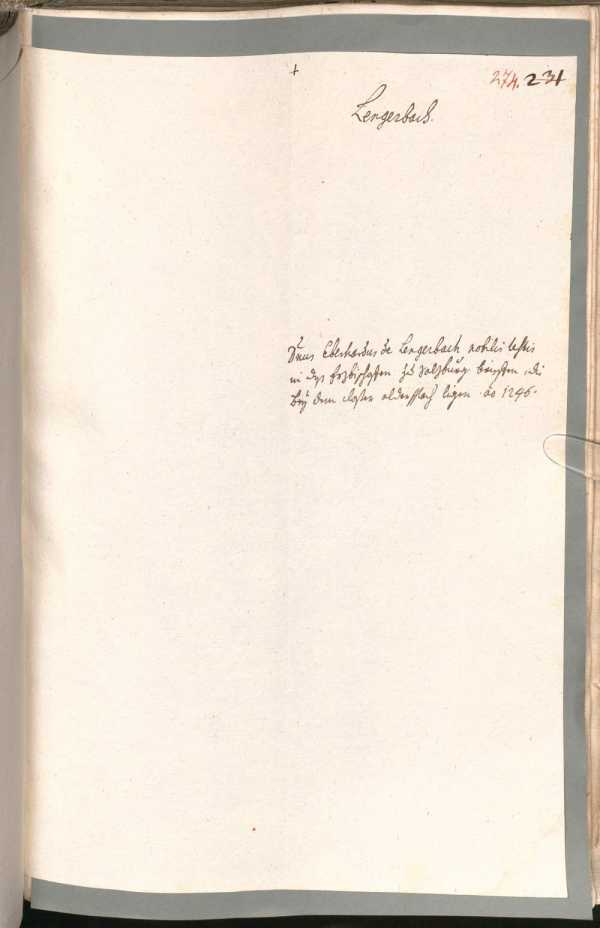 +
274. 231
Lengerbach.
Dnus Eberhardus de Lengerbach nobilis testis
in des Erzbischoffen zu Salzburg brieffen, die
bey dem closter alderspach ligen. ao 1246.